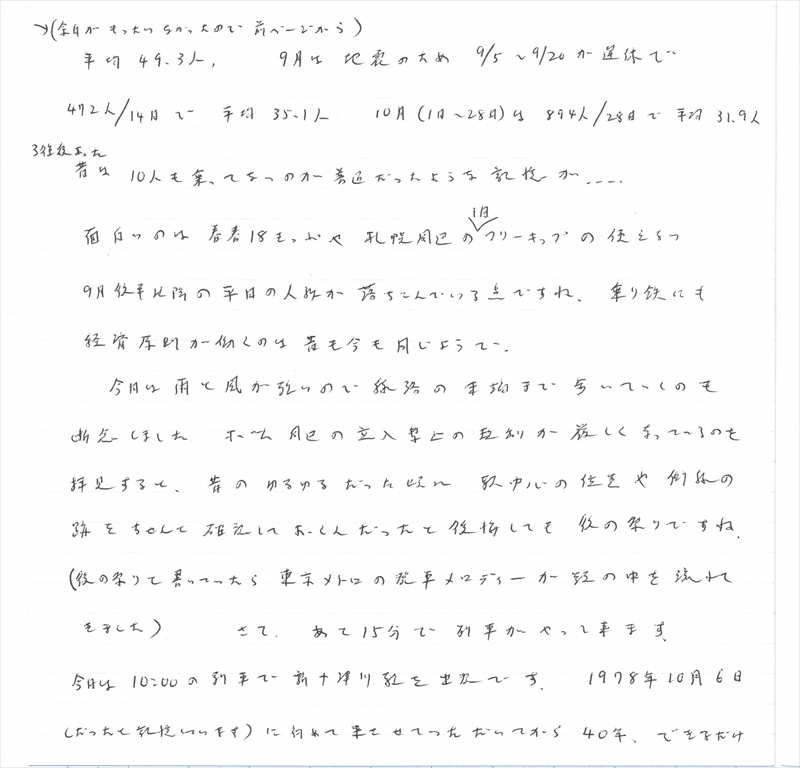 →(余白がもったいなかったので前ページから)
平均49.3人, 9月は地震のため 9/5~9/20が運休で
472人/14日で 平均35.1人 10月(1日~28日)は 894人/28日で平均31.9人
3往復あった
昔は 10人も乗ってないのが普通だったような記憶が....
1日
面白いのは青春18きっぷや札幌周辺のフリーキップの使えない
9月後半以降の平日の人数が落ちこんでいる点ですね. 乗り鉄にも
経済原則が働くのは昔も今も同じようで.
今日は雨と風が強いので線路の末端まで歩いていくのも
断念しました ホーム周辺の立入禁止の規制が厳しくなっているのを
拝見すると、昔のゆるゆるだった頃に 駅中心の位置や側線の
跡をちゃんと確認しておくんだったと後悔しても 後の祭りですね.
(後の祭りと書っていたら 東京メトロの発車メロディーが頭の中を流れて
きました) さて. あと15分で列車がやって来ます.
今日は10:00の列車で新十津川駅を出発です. 1978年10月6日
(だったと記憶しています)に初めて乗せていただいてから 40年、できるだけ